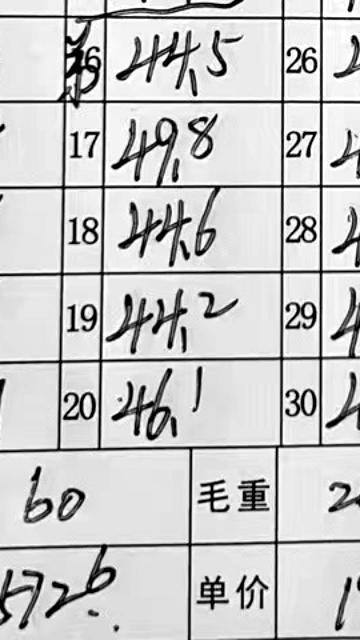 16 44.5 26
17 49.8 27
18 44.6 28
19 44.2 29
20 46.1 30
60 毛重
5726 单价